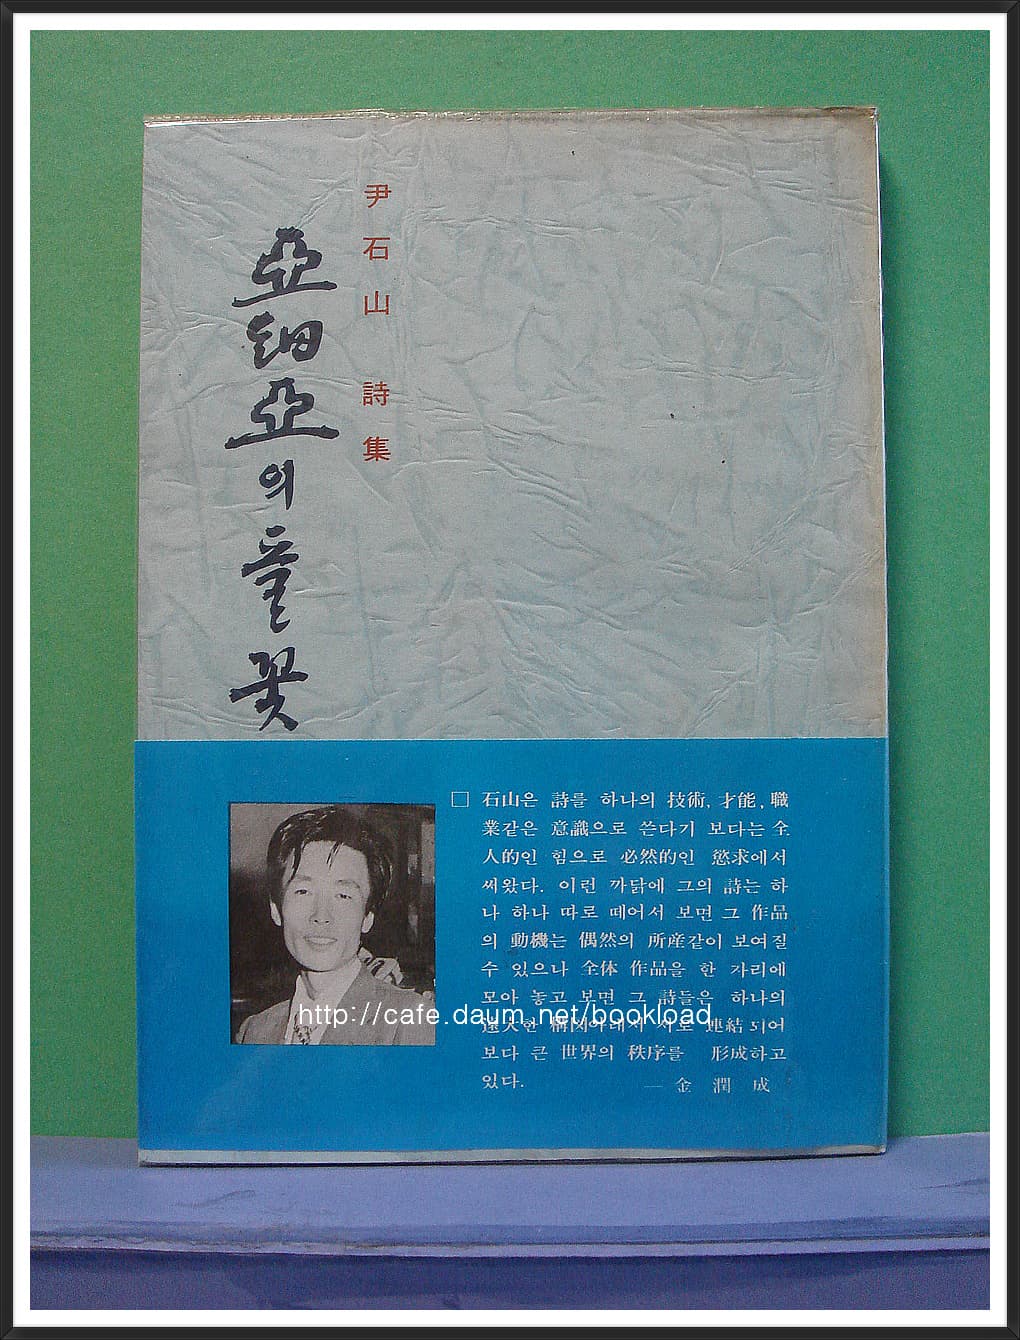 尹石山 詩集
亞細亞의 들꽃
□ 石山은 詩를 하나의 技術, 才能, 職
業같은 意識으로 쓴다기 보다는 全
人的인 힘으로 必然的인 慾求에서
써왔다. 이런 까닭에 그의 詩는 하
나 하나 따로 떼어서 보면 그 作品
의 動機는 偶然의 所産같이 보여질
수 있으나 全体 作品을 한 자리에
모아 놓고 보면 그 詩들은 하나의
遠大한 構図아래서 서로 連結되어
보다 큰 世界의 秩序를 形成하고
있다. ― 金潤成
http://cafe.daum.net/bookload